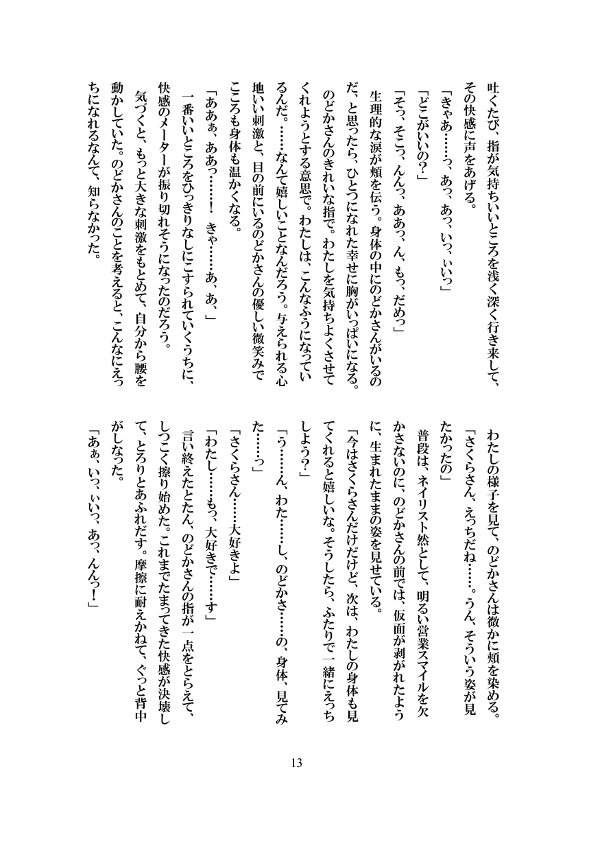 吐くたび、指が気持ちいいところを浅く深く行き来して、
その快感に声をあげる。
「きゃあ……っ、あっ、あっ、いっ、ぃいっ」
「どこがいいの?」
「そっ、そこっ、んんっ、ああっ、ん、もっ、だめっ」
生理的な涙が頬を伝う。身体の中にのどかさんがいるの
だ、と思ったら、ひとつになれた幸せに胸がいっぱいになる。
のどかさんのきれいな指で。わたしを気持ちよくさせて
くれようとする意思で。わたしは、こんなふうになってい
るんだ。……なんて嬉しいことなんだろう。与えられる心
地いい刺激と、目の前にいるのどかさんの優しい微笑みで
こころも身体も温かくなる。
「ああぁ、ああっ……! きゃ……あ、あ、」
一番いいところをひっきりなしにこすられていくうちに、
快感のメーターが振り切れそうになったのだろう。
気づくと、もっと大きな刺激をもとめて、自分から腰を
動かしていた。のどかさんのことを考えると、こんなにえっ
ちになれるなんて、知らなかった。
わたしの様子を見て、のどかさんは微かに頬を染める。
「さくらさん、えっちだね……。うん、そういう姿が見
たかったの」
普段は、ネイリスト然として、明るい営業スマイルを欠
かさないのに、のどかさんの前では、仮面が剥がれたよう
に、生まれたままの姿を見せている。
「今はさくらさんだけだけど、次は、わたしの身体も見
てくれると嬉しいな。そうしたら、ふたりで一緒にえっち
しよう?」
「う……ん、わた……し、のどかさ……の、身体、見てみ
た……っ」
「さくらさん……大好きよ」
「わたし……もっ、大好きで……す」
言い終えたとたん、のどかさんの指が一点をとらえて、
しつこく擦り始めた。これまでたまってきた快感が決壊し
て、とろりとあふれだす。摩擦に耐えかねて、ぐっと背中
がしなった。
「あぁ、いっ、ぃいっ、あっ、んんっ!」
13